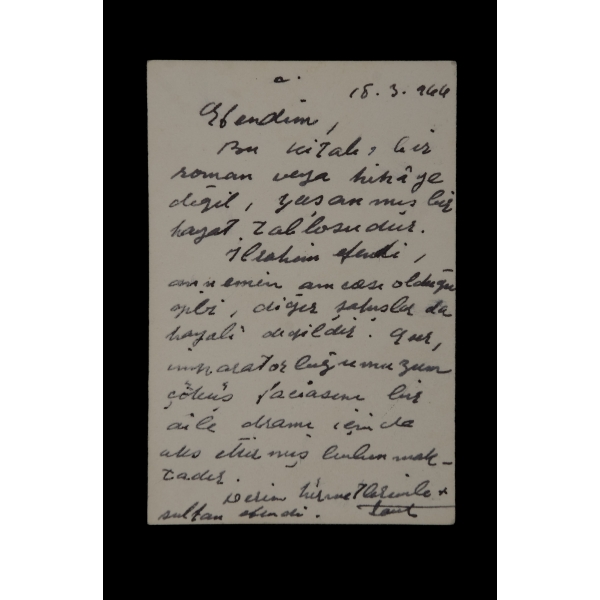 18. 3. 966
Efendim,
Bu kitab, bir
roman veya hikâye
değil, yaşanmış bir
hayat tablosudur.
İbrahim efendi,
annemin amcası olduğu
gibi, diğer şahıslar da
hayalî değildir. Eser,
imparatorluğumuzun
çöküş faciasını bir
aile dramı içinde
aks ettirmiş bulunmak-
tadır.
Derin hürmetlerimle
sultan efendi.